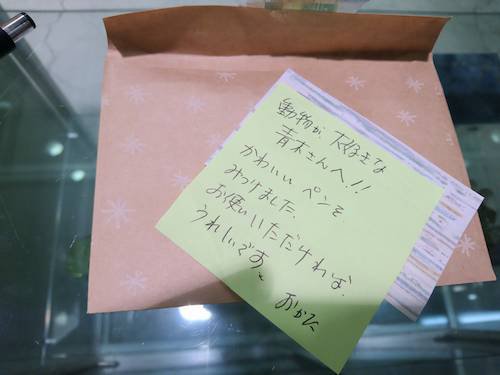 動物が大好きな
青木さんへ!!
かわいいペンを
みつけました。
お使いいただければ、
うれしいです。